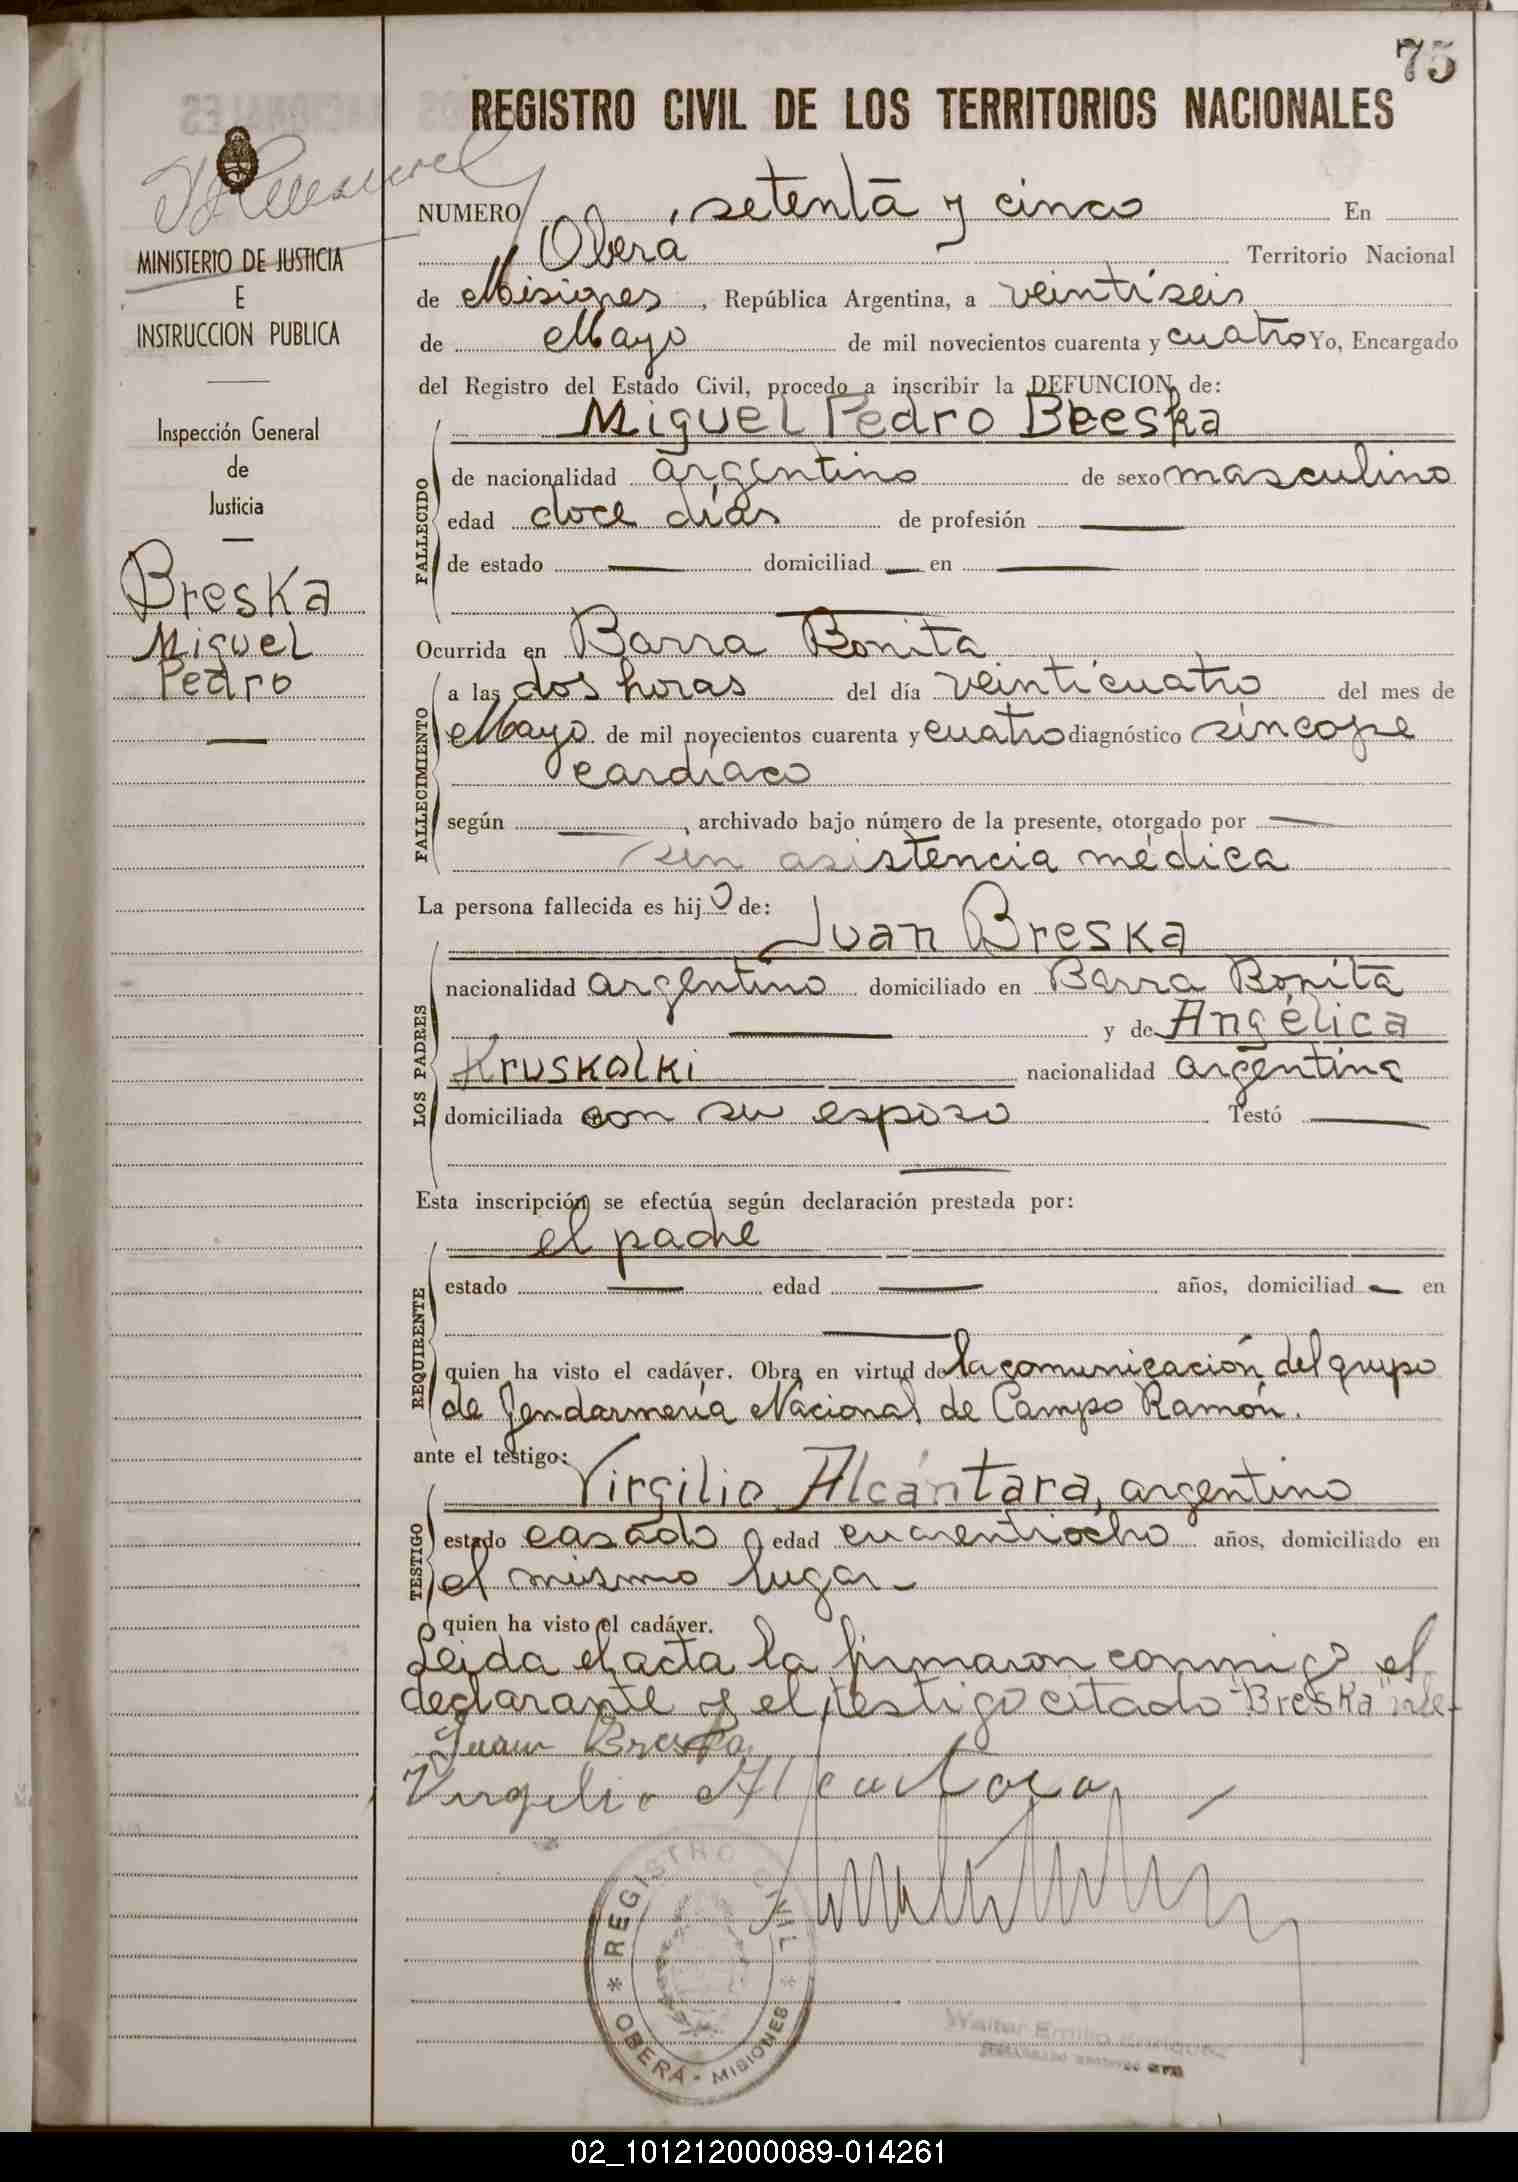 75
REGISTRO CIVIL DE LOS TERRITORIOS NACIONALES
MINISTERIO DE JUSTICIA
E
INSTRUCCION PUBLICA
Inspección General
de
Justicia
Breska
Miguel
Pedro
NUMERO setenta y cinco En
Oberá Territorio Nacional
de Misiones, República Argentina, a veintiseis
de Mayo de mil novecientos cuarenta y cuatro Yo, Encargado
del Registro del Estado Civil, procedo a inscribir la DEFUNCION de:
Miguel Pedro Breska
FALLECIDO
de nacionalidad argentino de sexo masculino
edad doce días de profesión —
de estado — domiciliad — en —
Ocurrida en Barra Bonita
FALLECIMIENTO
a las dos horas del día veinticuatro del mes de
Mayo de mil novecientos cuarenta y cuatro diagnóstico síncope
cardíaco
según —, archivado bajo número de la presente, otorgado por —
sin asistencia médica
La persona fallecida es hijo de:
Juan Breska
LOS PADRES
nacionalidad argentino domiciliado en Barra Bonita
— y de Angélica
Kruskolki nacionalidad argentina
domiciliada con su esposo Testó —
—
Esta inscripción se efectúa según declaración prestada por:
el padre
REQUIRENTE
estado — edad — años, domiciliad — en
—
quien ha visto el cadáver. Obra en virtud de la comunicación del grupo
de Gendarmería Nacional de Campo Ramón.
ante el testigo:
Virgilio Alcántara, argentino
TESTIGO
estado casado edad cuarentiocho años, domiciliado en
el mismo lugar
quien ha visto el cadáver.
Leida el acta la firmaron conmigo el
declarante y el testigo citado - "Breska"
Juan Breska
Virgilio Alcantara
REGISTRO CIVIL
OBERÁ - MISIONES
Walter Emilio
02_101212000089-014261